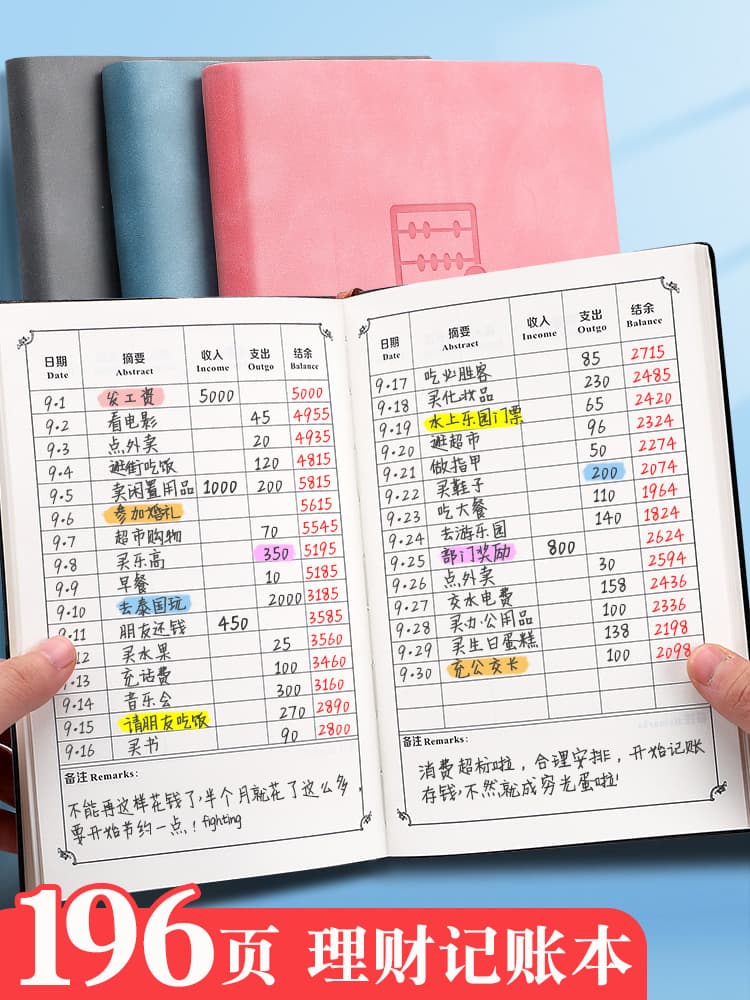 日期 摘要 收入 支出 结余
Date Abstract Income Outgo Balance
9.1 发工资 5000 5000
9.2 看电影 45 4955
9.3 点外卖 20 4935
9.4 逛街吃饭 120 4815
9.5 卖闲置用品 1000 200 5815
9.6 参加婚礼 5615
9.7 超市购物 70 5545
9.8 买乐高 350 5195
9.9 早餐 10 5185
9.10 去泰国玩 2000 3185
.11 朋友还钱 450 3585
12 买水果 25 3560
.13 充话费 100 3460
9.14 音乐会 300 3160
9.15 请朋友吃饭 270 2890
9.16 买书 90 2800
备注 Remarks:
不能再这样花钱了,半个月就花了这么多,
要开始节约一点!fighting
日期 摘要 收入 支出 结余
Date Abstract Income Outgo Balance
9.17 吃必胜客 85 2715
9.18 买化妆品 230 2485
9.19 水上乐园门票 65 2420
9.20 逛超市 96 2324
9.21 做指甲 50 2274
9.22 买鞋子 200 2074
9.23 吃大餐 110 1964
9.24 去游乐园 140 1824
9.25 部门奖励 800 2624
9.26 点外卖 30 2594
9.27 交水电费 158 2436
9.28 买办公用品 100 2336
9.29 买生日蛋糕 138 2198
9.30 充公交卡 100 2098
备注 Remarks:
消费超标啦,合理安排,开始记账
存钱,不然就成穷光蛋啦!
196页 理财记账本